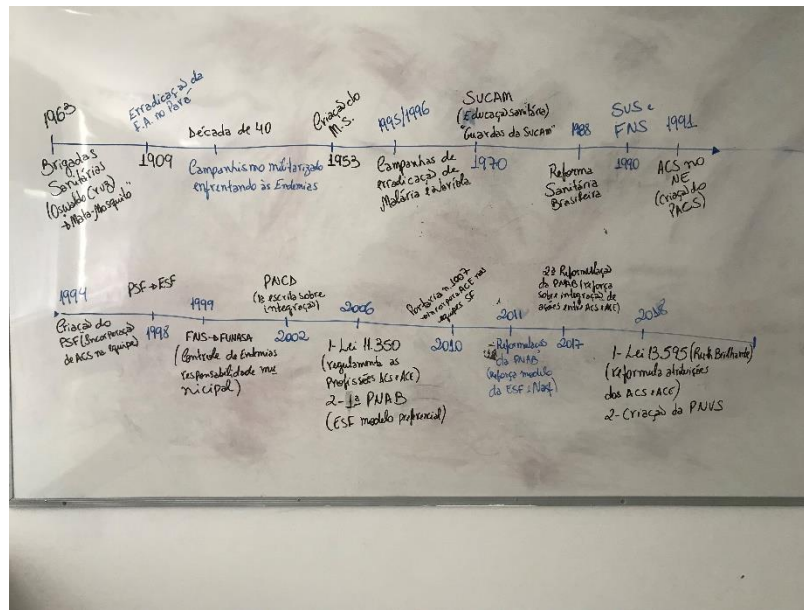 1963
Brigadas
Sanitárias
(Oswaldo Cruz)
→ Mata-Mosquito"
Erradicação da
F.A. no Pará
1909
Década de 40
Campanhismo militarizado
enfrentando às Endemias
Criação do
M.S.
1953
1995/1996
Campanhas de
erradicação de
Malária e Varíola
SUCAM
(Educação sanitária)
"Guardas da Sucam"
1970
1988
Reforma
Sanitária
Brasileira
SUS e
FNS
1990
1991
ACS no
NE
(criação do
PACS)
1994
Criação do
PSF (Incorporação
de ACS na equipe)
PSF → ESF
1998
1999
FNS → FUNASA
(Controle de Endemias
responsabilidade mu
nicipal)
PNCD
(1ª escrita sobre
integração)
2002
2006
1- Lei 11.350
(regulamenta as
Profissões ACS e ACE)
2- 1ª PNAB
(ESF modelo preferencial)
Portaria n. 1007
ACE nas
equipes SF
2010
2011
- Reformulação
da PNAB
(reforça modelo
da ESF e Nasf)
2ª Reformulação
da PNAB (reforça
sobre integração de
ações entre ACS e ACE)
2017
2018
1- Lei 13.595 (Ruth Brilhante)
(reformula atribuições
dos ACS e ACE)
2- Criação da PNVS